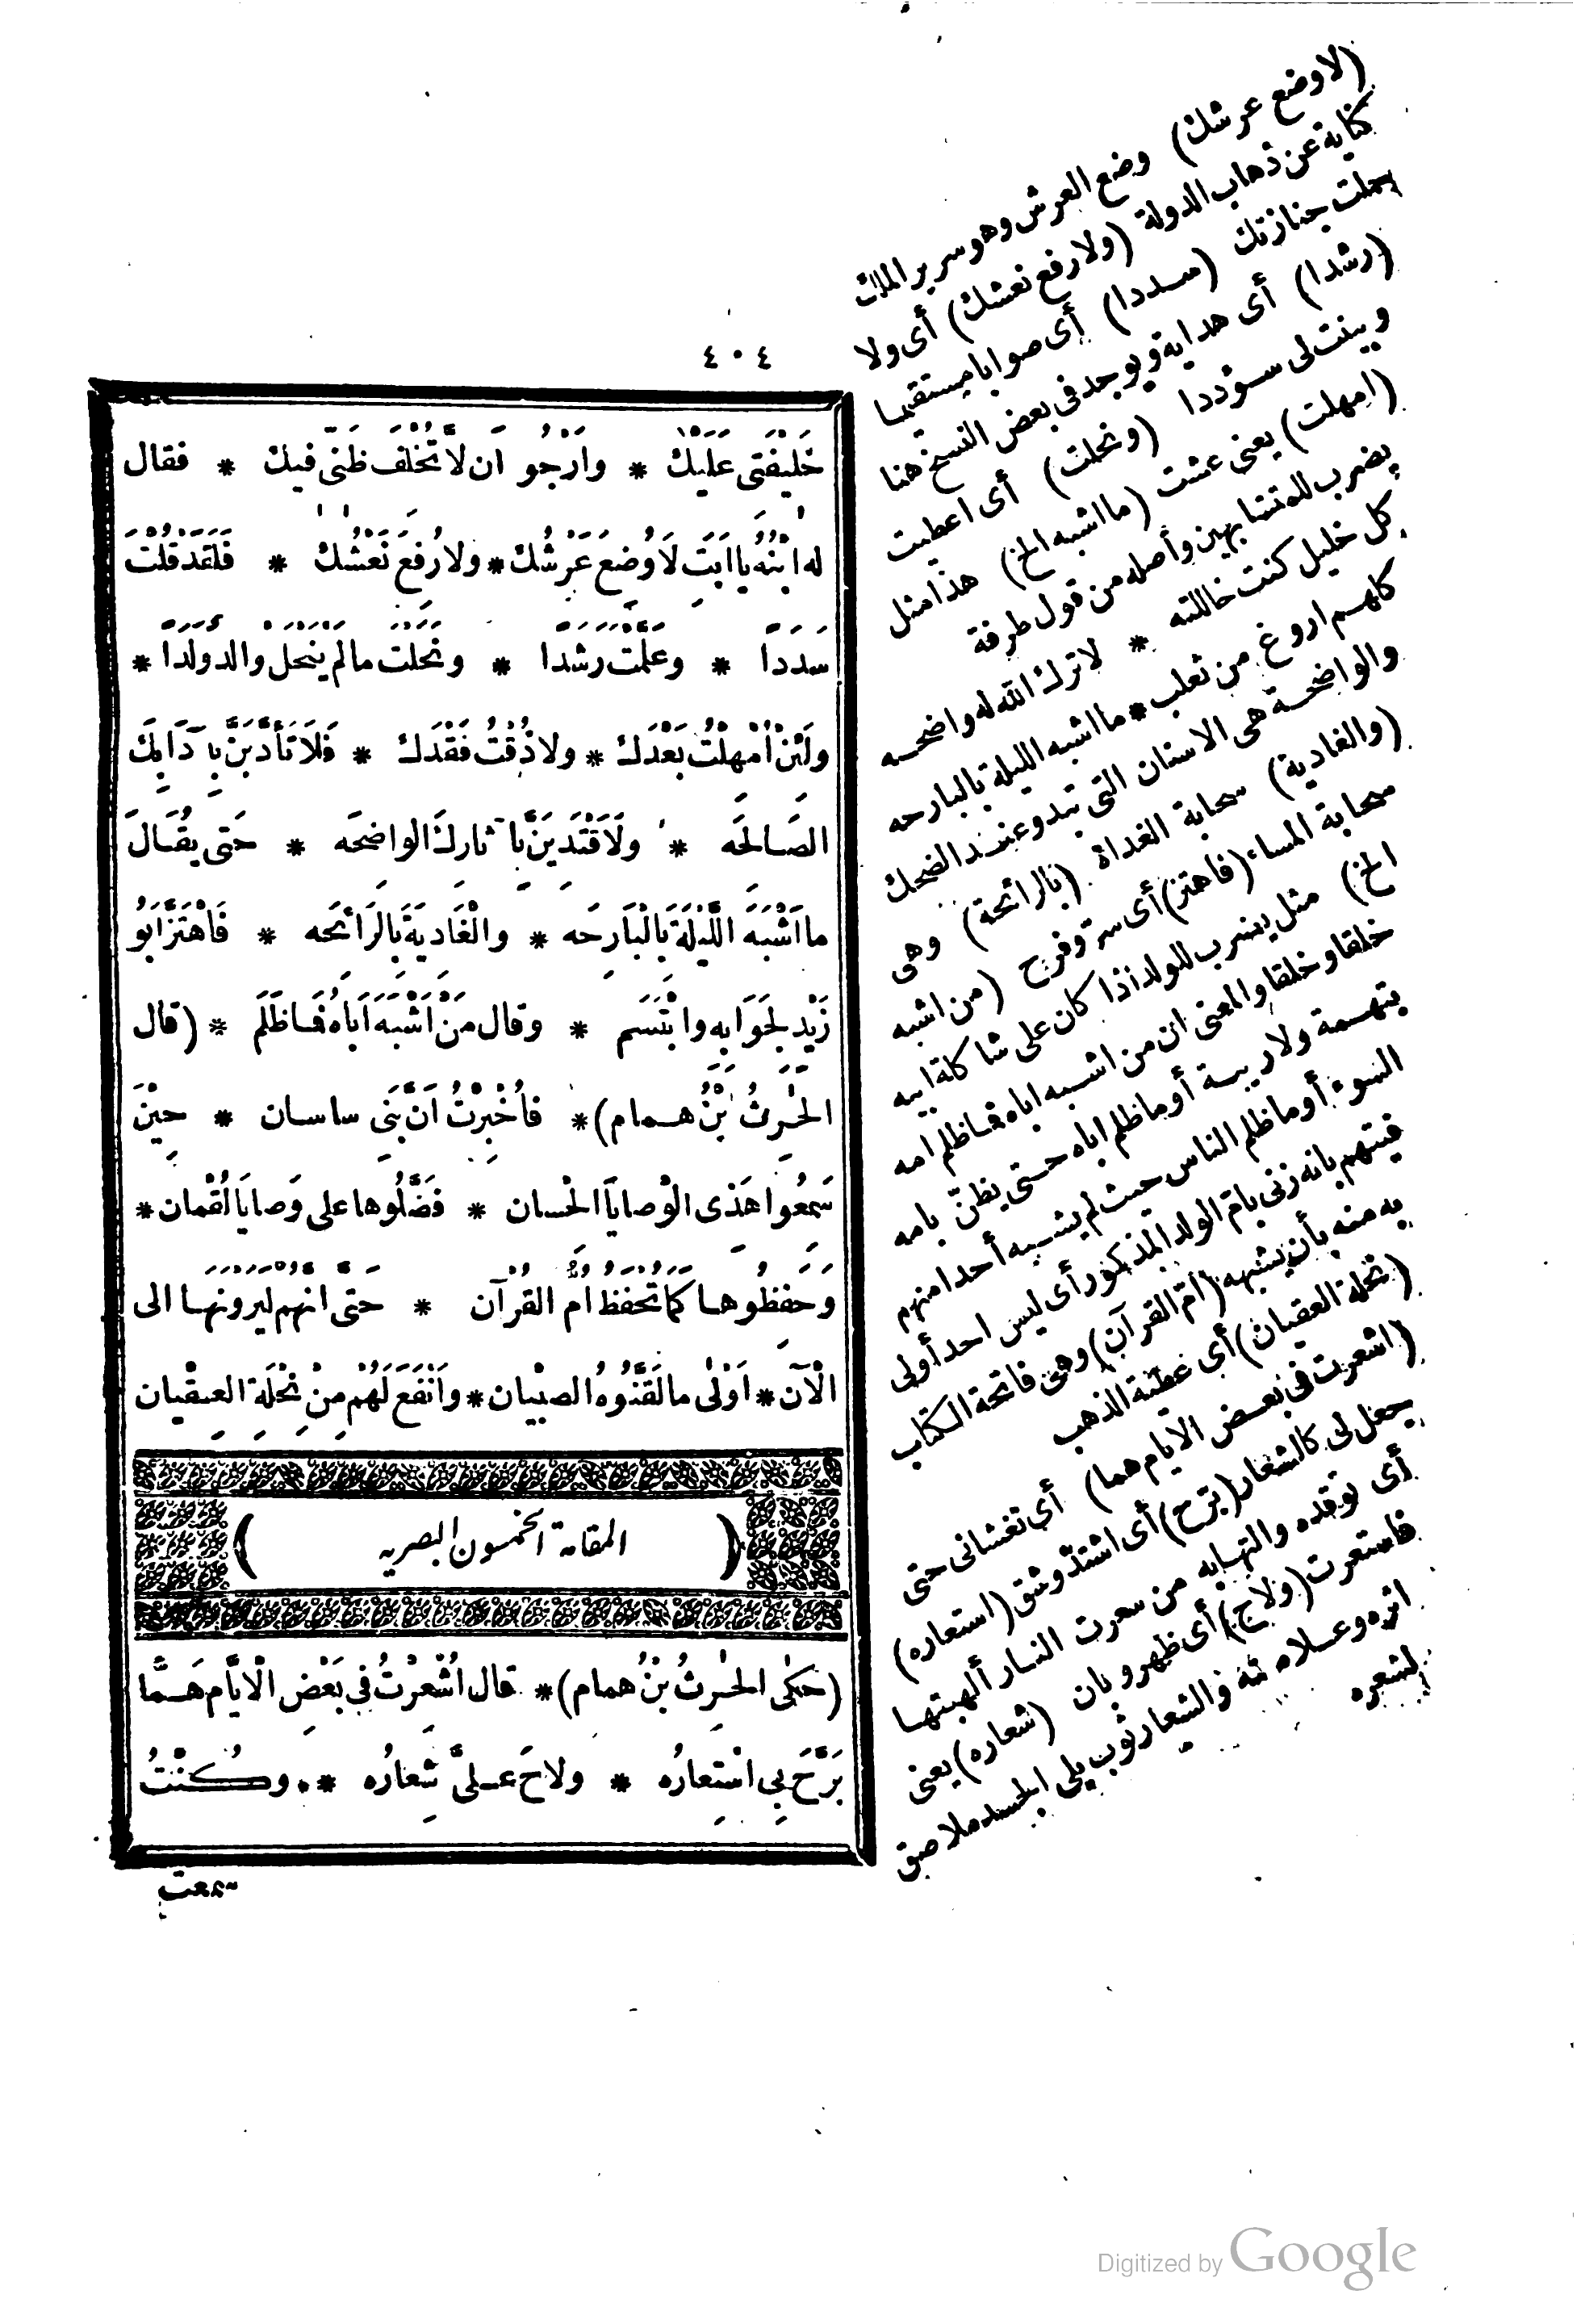 ٤٠٤
خَلِيْفَتِى عَلَيْكَ * وأَرْجُو اَنْ لاَ تُخْلِفَ ظَنِّى فيكَ * فقال
له ابْنُهُ يا اَبَتِ لاَ وُضِعَ عَرْشُكَ * ولا رُفِعَ نَعْشُكَ * فَلَقَدْ قُلْتَ
سَدَداً * وعَلَّمْتَ رَشَدا * ونَحَلْتَ ما لم يَنْحَل والدٌ ولَدَاً *
ولَئِنْ اُمْهِلْتُ بَعْدَكَ * ولا ذُقْتُ فَقْدَكَ * فَلَا تَأَدَّبَنَّ بِآدَابِكَ
الصَّالِحَه * ولَاَقْتَدِيَنَّ بِآثارِكَ الواضِحَه * حَتى يقُالَ
ما اَشْبَهَ اللَّيْلَةَ بَالْبَارِحَه * والْغَادِيَةَ بَالرَائِحَه * فَاهْتَزَّ ابَوُ
زَيْدٍ لِجَوَابِهِ وابْتَسَم * وقال مَنْ اَشْبَهَ اَباَهُ فَما ظَلَم * (قال
الحٰرِثُ بْنُ همام) * فاُخْبِرْتُ اَنَّ بَنَى ساسان * حِيْنَ
سَمِعُوا هَذِى الْوصايَا الْحسان * فَضَّلُوها على وَصايَا لُقْمان *
وَحَفِظُوها كَمَا تُحْفَظ اُمُّ القُرْآن * حَتىَّ انَّهُم لَيَروْنَهَا الى
الْآن * اَوْلٰى ما لَقَّنُوهُ الصِبْيان * واَنْفَعَ لَهُمْ مِنْ نِحْلَةِ العِقْيان
( المقامة الخمسون البصريه )
(حَكٰى الحٰرِثُ بْنُ همام) * قال اُشْعِرْتُ فى بَعْضِ الْاَيَّامِ هَمًّا
بَرَّحَ بِى اسْتِعارُه * ولاحَ عَلىَّ شِعارُه * وكُنْتُ
سمعت
(لا وضع عرشك) وضع العرش وهو سرير الملك
كناية عن ذهاب الدولة (ولا رفع نعشك) أى ولا
حملت جنازتك (سددا) أى صوابا مستقيما
(رشدا) أى هداية ويوجد فى بعض النسخ هنا
وبينت لى سؤددا (ونحلت) أى اعطيت
(امهلت) يعنى عشت (ما اشبه الخ) هذا مثل
يضرب للمتشابهين وأصله من قول طرفة
كل خليل كنت خاللته * لا ترك الله له واضحه
كلهم اروغ من ثعلب * ما اشبه الليلة بالبارحه
والواضحة هى الاسنان التى تبدو عند الضحك
(والغادية) سحابة الغداة (بالرائحة) وهى
سحابة المساء (فاهتز) أى سر وفرح (من اشبه
الخ) مثل يضرب للولد اذا كان على شاكلة ابيه
خلقا وخلقا والمعنى ان من اشبه اباه فما ظلم امه
بتهمة ولا ريبة أو ما ظلم اباه حتى يظن بامه
السوء أو ما ظلم الناس حيث لم يشبه أحدا منهم
فيتهم بانه زنى بام الولد المذكور أى ليس احد أولى
به منه بأن يشبهه (ام القرآن) وهى فاتحة الكتاب
(نحلة العقيان) أى عطية الذهب
(اشعرت فى بعض الايام هما) أى تغشانى حتى
جعل لى كالشعار (برح) أى اشتد وشق (استعاره)
أى توقده والتهابه من سعرت النار ألهبتها
فاستعرت (ولاح) أى ظهر وبان (شعاره) يعنى
اثره وعلامته والشعار ثوب يلى الجسد ملاصق
لشعره
Digitized by Google